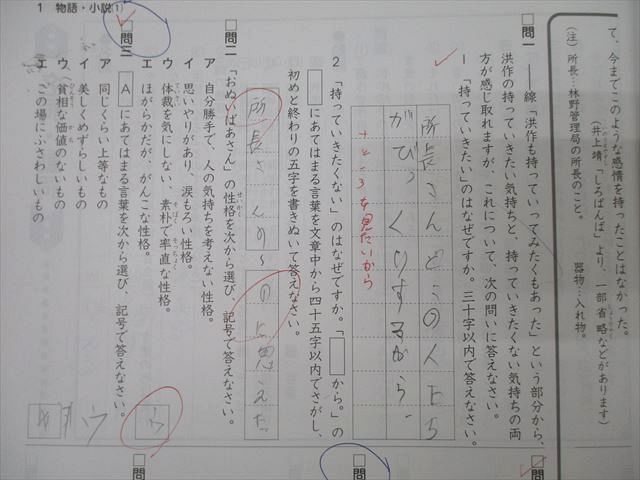 1 物語・小説(1)
て、今までこのような感情を持ったことはなかった。
(井上靖「しろばんば」より、一部省略などがあります)
(注) 所長…林野管理局の所長のこと。
器物…入れ物。
□問一 ――線「洪作も持っていってみたくもあった」という部分から、
洪作の持っていきたい気持ちと、持っていきたくない気持ちの両
方が感じ取れますが、これについて、次の問いに答えなさい。
1 「持っていきたい」のはなぜですか。三十字以内で答えなさい。
所長さんどこの人たち
がびっくりするから
ところを見たいから
2 「持っていきたくない」のはなぜですか。「□から。」の
□にあてはまる言葉を文章中から四十五字以内でさがし、
初めと終わりの五字を書きぬいて答えなさい。
所長さんの〜のに思えた
□問二 「おぬいばあさん」の性格を次から選び、記号で答えなさい。
ア 自分勝手で、人の気持ちを考えない性格。
イ 思いやりがあり、涙もろい性格。
ウ 体裁を気にしない、素朴で率直な性格。
エ ほがらかだが、がんこな性格。
ウ
□問三 Aにあてはまる言葉を次から選び、記号で答えなさい。
ア 同じくらい上等なもの
イ 美しくめずらしいもの
ウ 貧相な価値のないもの
エ この場にふさわしいもの
ウ
□問
□問
□問